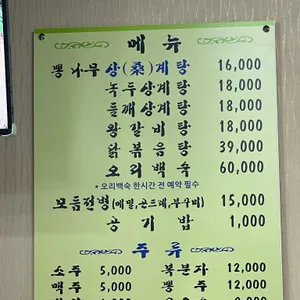 메 뉴
뽕나무 상(桑)계탕 16,000
녹두삼계탕 18,000
들깨삼계탕 18,000
왕갈비탕 18,000
닭볶음탕 39,000
오리백숙 60,000
*오리백숙 한시간 전 예약 필수
모듬전병(메밀,곤드레,부꾸미) 15,000
공기밥 1,000
주 류
소주 5,000 복분자 12,000
맥주 5,000 뽕주 12,000